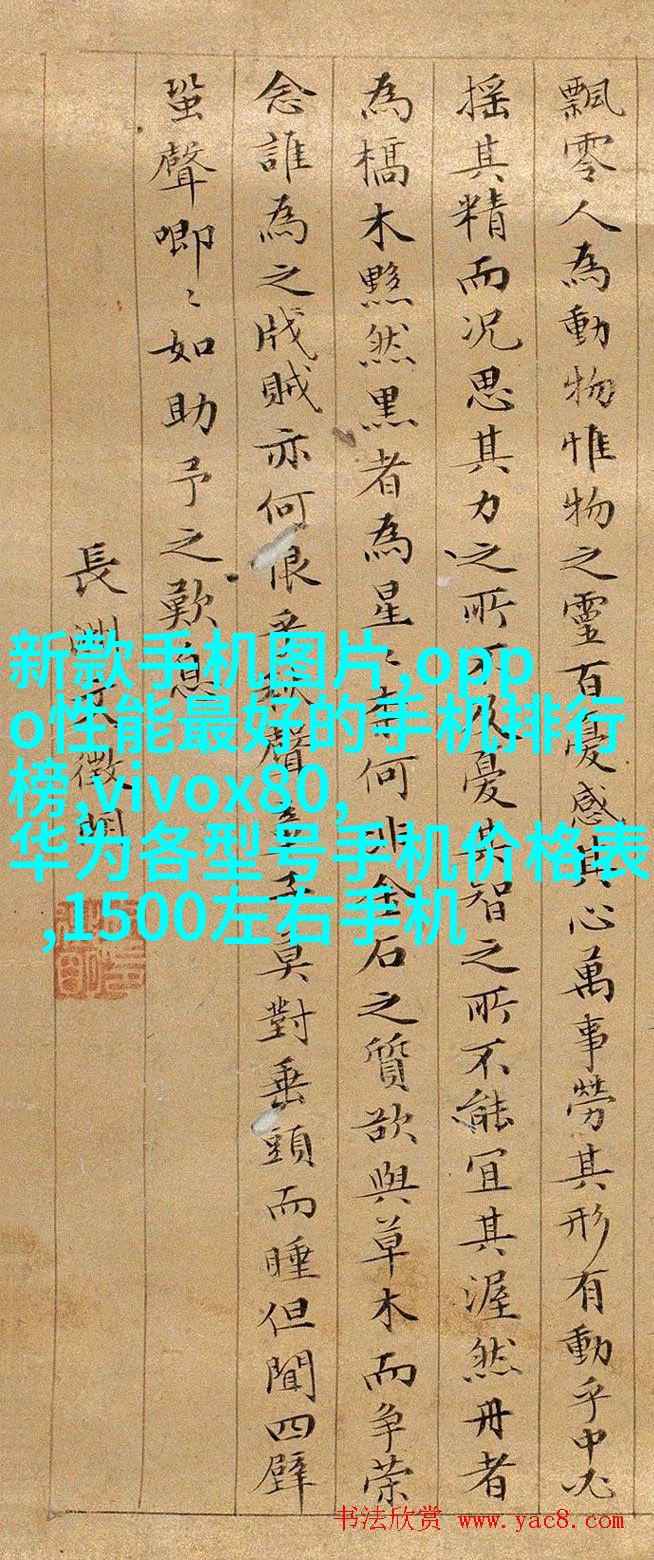 飄零人為動物惟物之靈百憂感其心萬事勞其形有動乎中必
搖其精而況思其力之所不及憂其智之所不能宜其渥然丹者
為槁木黟然黑者為星〻奈何非金石之質欲與草木而争荣
念誰為之戕賊亦何恨乎秋聲童子莫對垂頭而睡但聞四壁
蛩聲唧〻如助予之歎息
長洲文徵明
新款手机图片,opp
o性能最好的手机排行
榜,vivox80,
华为各型号手机价格表
,1500左右手机
书法欣赏 www.yac8.com